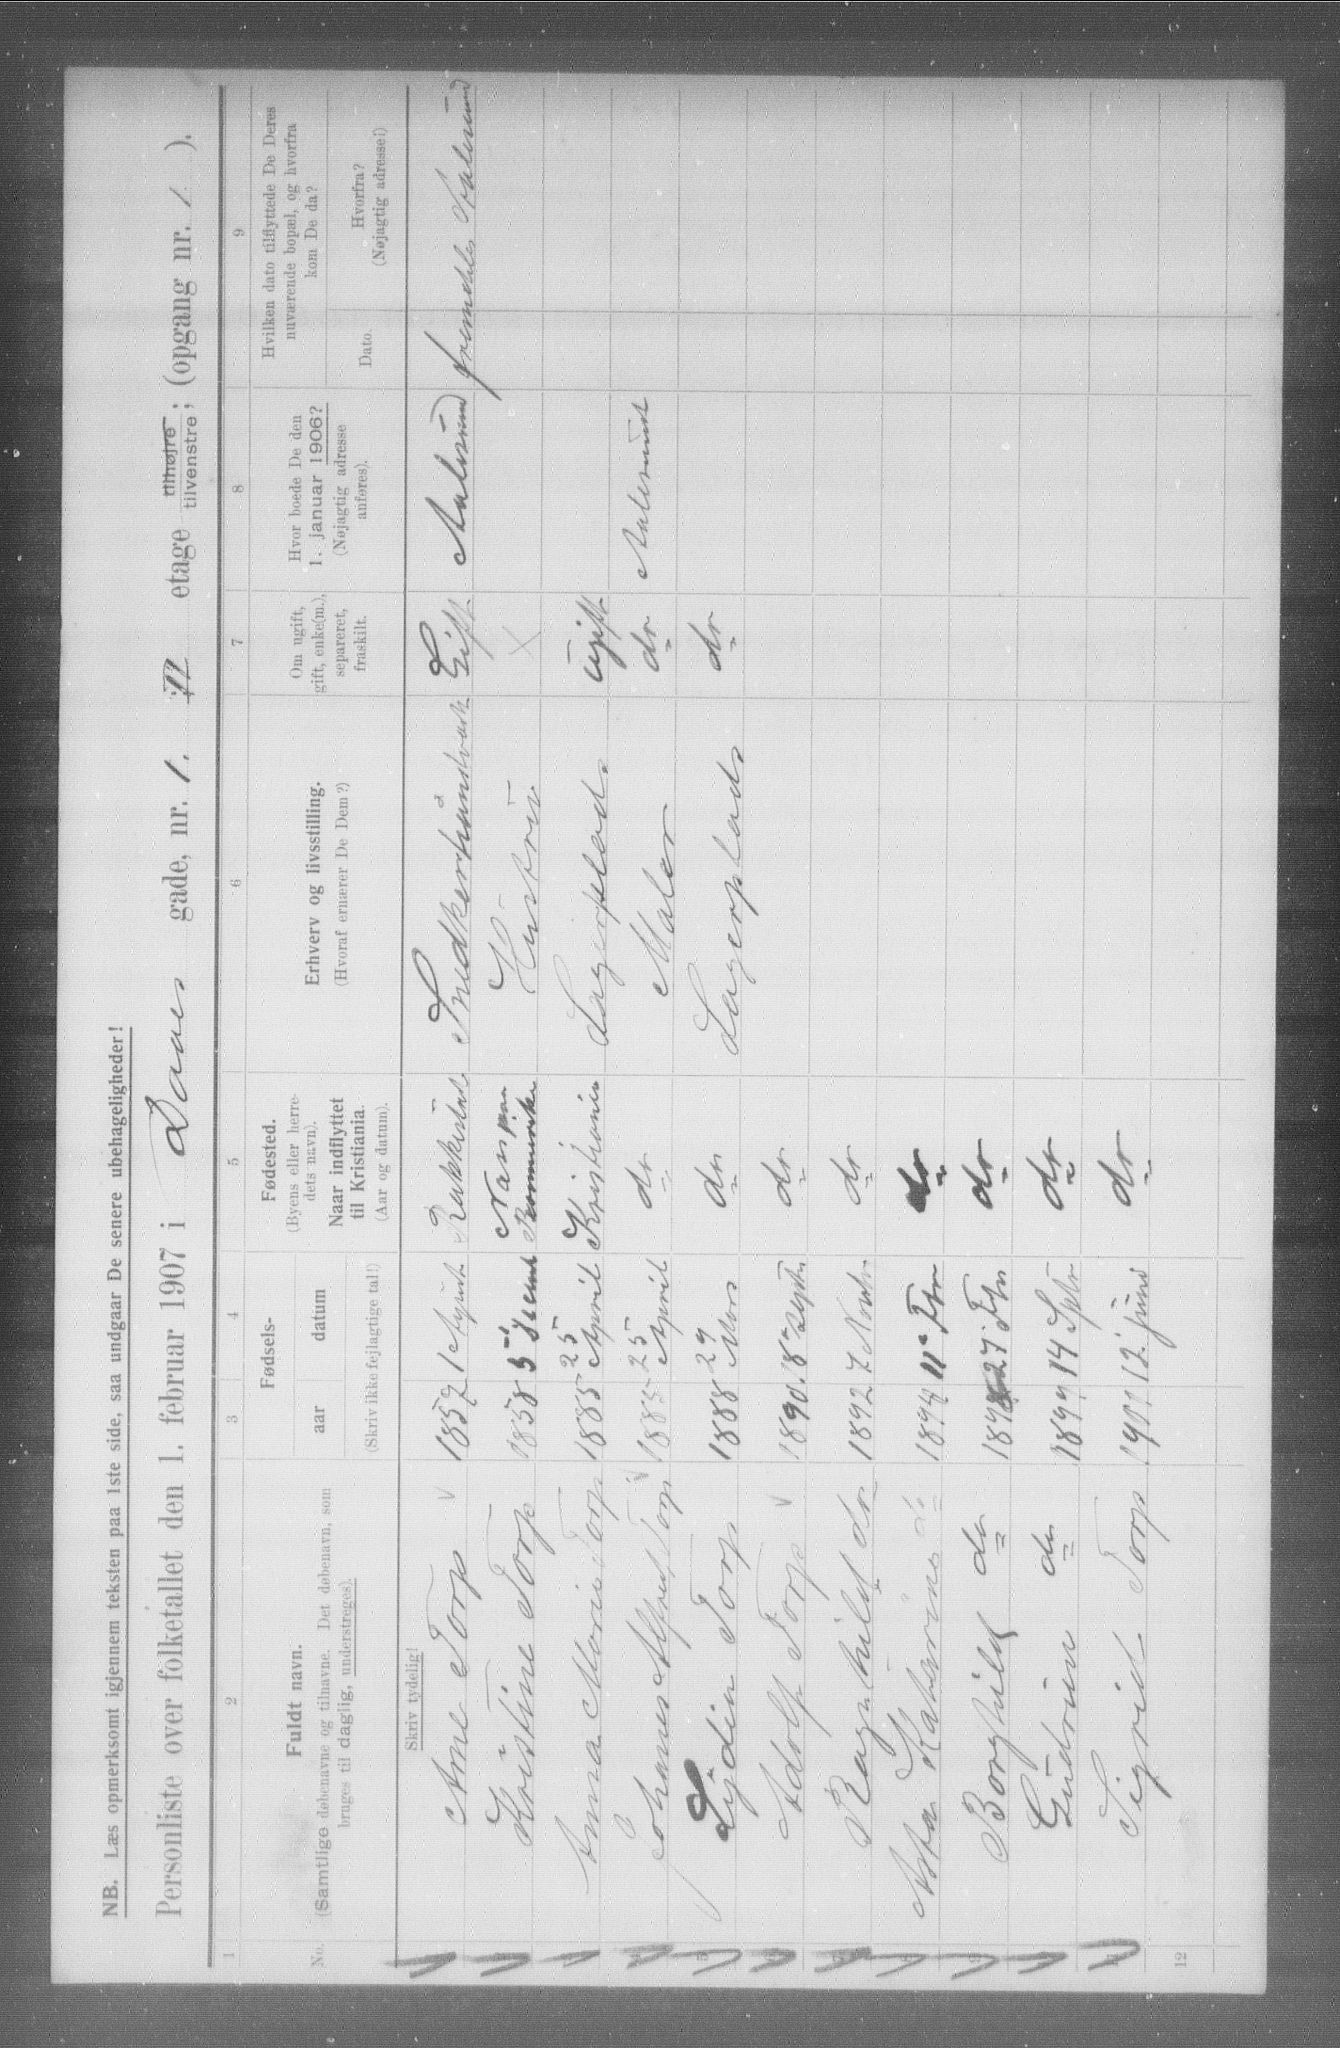 NB. Læs opmerksomt igjennem teksten paa 1ste side, saa undgaar De senere ubehageligheder!
Personliste over folketallet den 1. februar 1907 i Daaes gade, nr. 1. II etage tilhøjre tilvenstre; (opgang nr. 1 ).
1 2 3 4 5 6 7 8 9
No.
Fuldt navn.
(Samtlige døbenavne og tilnavne. Det døbenavn, som
bruges til daglig, understreges).
Fødsels-
aar datum
(Skriv ikke fejlagtige tal!)
Fødested.
(Byens eller herre-
dets navn).
Naar indflyttet
til Kristiania.
(Aar og datum).
Erhverv og livsstilling.
(Hvoraf ernærer De Dem?)
Om ugift,
gift, enke(m.),
separeret,
fraskilt.
Hvor boede De den
1. januar 1906?
(Nøjagtig adresse
anføres).
Hvilken dato tilflyttede De Deres
nuværende bopæl, og hvorfra
kom De da?
Dato.
Hvorfra?
(Nøjagtig adresse!)
Skriv tydelig!
Arne Torp 1857 1 August Rakkestad Gift Aalesund fremdeles Aalesund
Kristine Torp 1858 5 Romerike Hustru X
Anna Marie Torp 1885 25 April Kristiania Lagerplads ugift
Johannes Alfred Torp 1885 25 April do Maler do Aalesund
Lydia Torp 1888 29 Mars do Lagerplads do
Adolf Torp 1890 18 Septbr do
Ragnhild do 1892 7 Novbr do
Asta Katerine do 1894 11 Fbr do
Borghild do 27 Fbr do
Gudrun do 1899 14 Sptr do
Sigrid Torp 1901 12 juni do
12